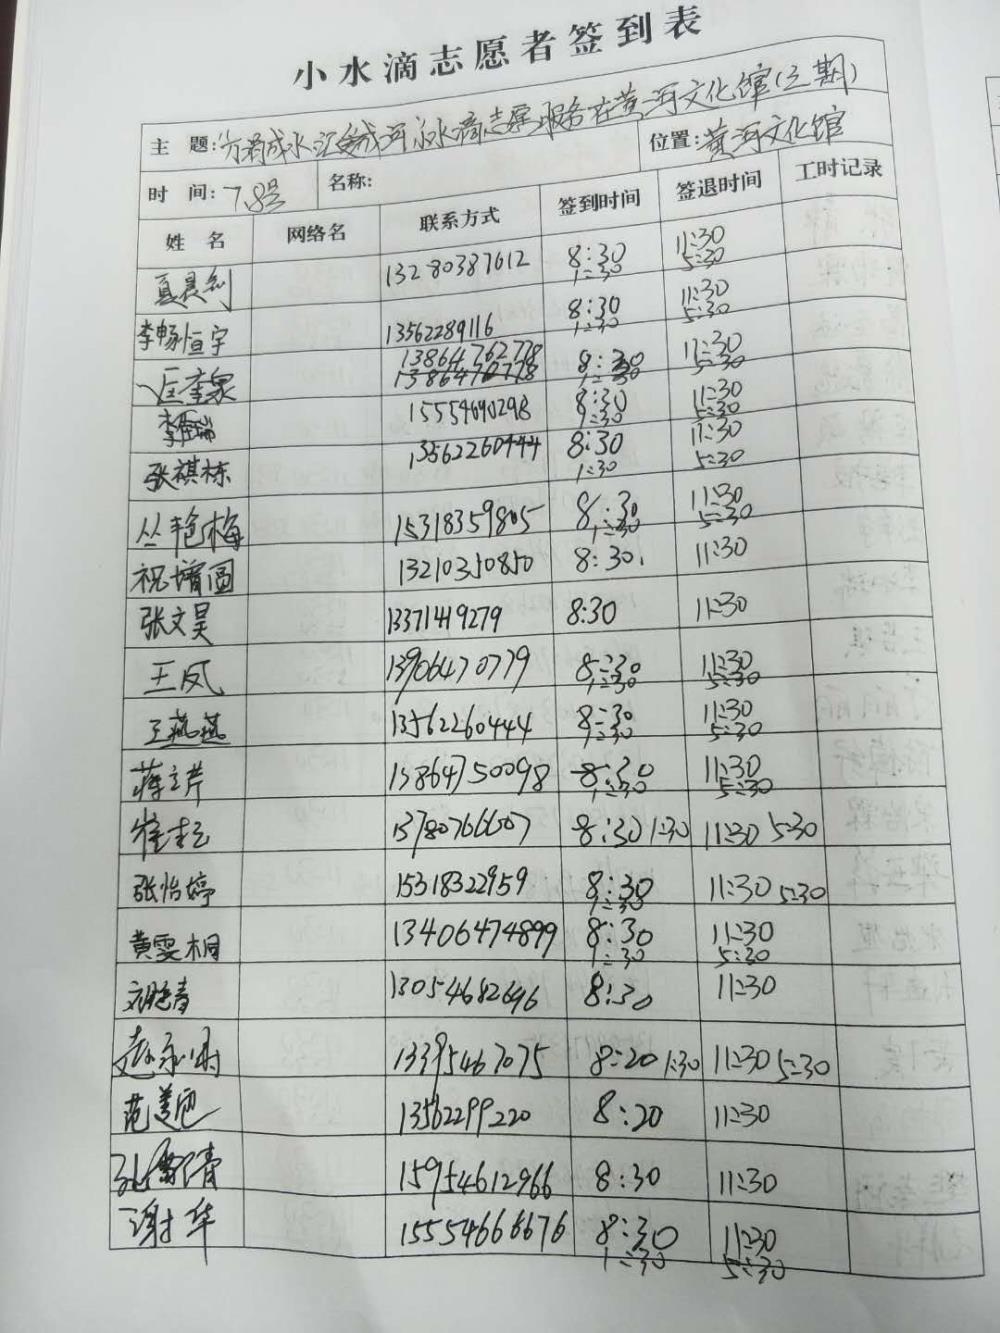 小水滴志愿者签到表
主 题:消成水汇成河 小水滴志愿服务在黄河文化馆(三期) 位置:黄河文化馆
时 间:7.8号 名称:
姓 名 网络名 联系方式 签到时间 签退时间 工时记录
夏晨剑 13280387612 8:30 11:30
1:30 5:30
李畅恒宇 13562289116 8:30 11:30
1:30 5:30
13864762778
13864762778 8:30 11:30
1:30 5:30
李 瑞 15554690298 8:30 11:30
1:30 5:30
张祺栋 13562260444 8:30 11:30
1:30 5:30
丛艳梅 15318359805 8:30 11:30
1:30 5:30
祝增圆 13210350850 8:30 11:30
张文昊 13371419279 8:30 11:30
王凤 13906470779 8:30 11:30
1:30 5:30
王燕燕 13562260444 8:30 11:30
1:30 5:30
蒋立芹 13864750098 8:30 11:30
1:30 5:30
崔 13780766607 8:30 1:30 11:30 5:30
张怡婷 15318322959 8:30 11:30 5:30
1:30
黄雯桐 13406474899 8:30 11:30
1:30 5:30
刘艳青 13054682696 8:30 11:30
赵永 13395467075 8:20 1:30 11:30 5:30
范 13562299220 8:20 11:30
孔 青 15954612966 8:30 11:30
谢华 15554666676 8:30 11:30
1:30 5:30